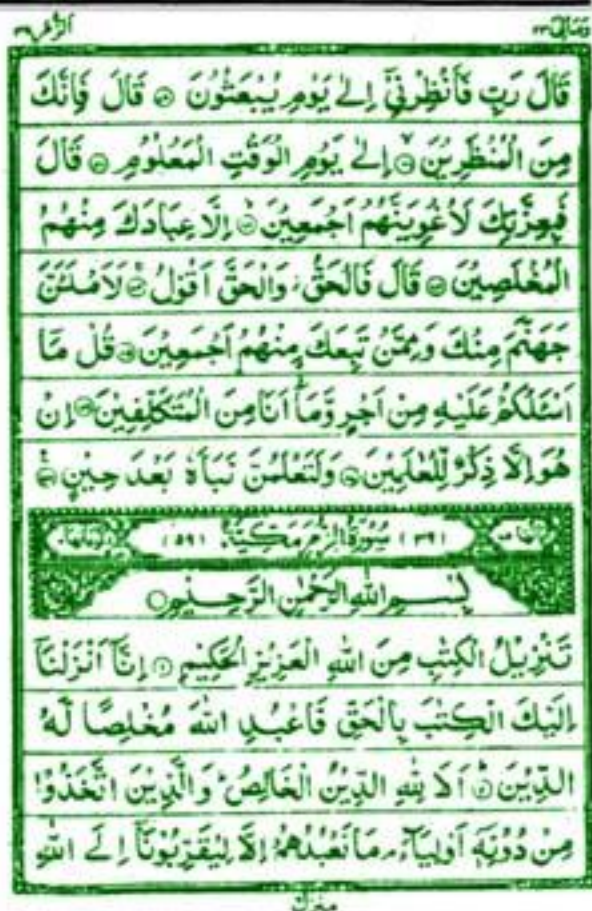 وَمَالِیَ ٢٣ الزُّمَر ٣٩
قَالَ رَبِّ فَاَنْظِرْنِیْۤ اِلٰى یَوْمِ یُبْعَثُوْنَ ۞ قَالَ فَاِنَّكَ
مِنَ الْمُنْظَرِیْنَ ۞ اِلٰى یَوْمِ الْوَقْتِ الْمَعْلُوْمِ ۞ قَالَ
فَبِعِزَّتِكَ لَاُغْوِیَنَّهُمْ اَجْمَعِیْنَ ۞ اِلَّا عِبَادَكَ مِنْهُمُ
الْمُخْلَصِیْنَ ۞ قَالَ فَالْحَقُّ وَالْحَقَّ اَقُوْلُ ۞ لَاَمْلَـَٔنَّ
جَهَنَّمَ مِنْكَ وَمِمَّنْ تَبِعَكَ مِنْهُمْ اَجْمَعِیْنَ ۞ قُلْ مَاۤ
اَسْـَٔلُكُمْ عَلَیْهِ مِنْ اَجْرٍ وَّمَاۤ اَنَا مِنَ الْمُتَكَلِّفِیْنَ ۞ اِنْ
هُوَ اِلَّا ذِكْرٌ لِّلْعٰلَمِیْنَ ۞ وَلَتَعْلَمُنَّ نَبَاَهٗ بَعْدَ حِیْنٍ ۞
(٣٩) سُوْرَةُ الزُّمَرِ مَكِّیَّةٌ (٥٩)
بِسْمِ اللّٰهِ الرَّحْمٰنِ الرَّحِیْمِ
تَنْزِیْلُ الْكِتٰبِ مِنَ اللّٰهِ الْعَزِیْزِ الْحَكِیْمِ ۞ اِنَّاۤ اَنْزَلْنَاۤ
اِلَیْكَ الْكِتٰبَ بِالْحَقِّ فَاعْبُدِ اللّٰهَ مُخْلِصًا لَّهُ
الدِّیْنَ ۞ اَلَا لِلّٰهِ الدِّیْنُ الْخَالِصُ وَالَّذِیْنَ اتَّخَذُوْا
مِنْ دُوْنِهٖۤ اَوْلِیَآءَ مَا نَعْبُدُهُمْ اِلَّا لِیُقَرِّبُوْنَاۤ اِلَى اللّٰهِ